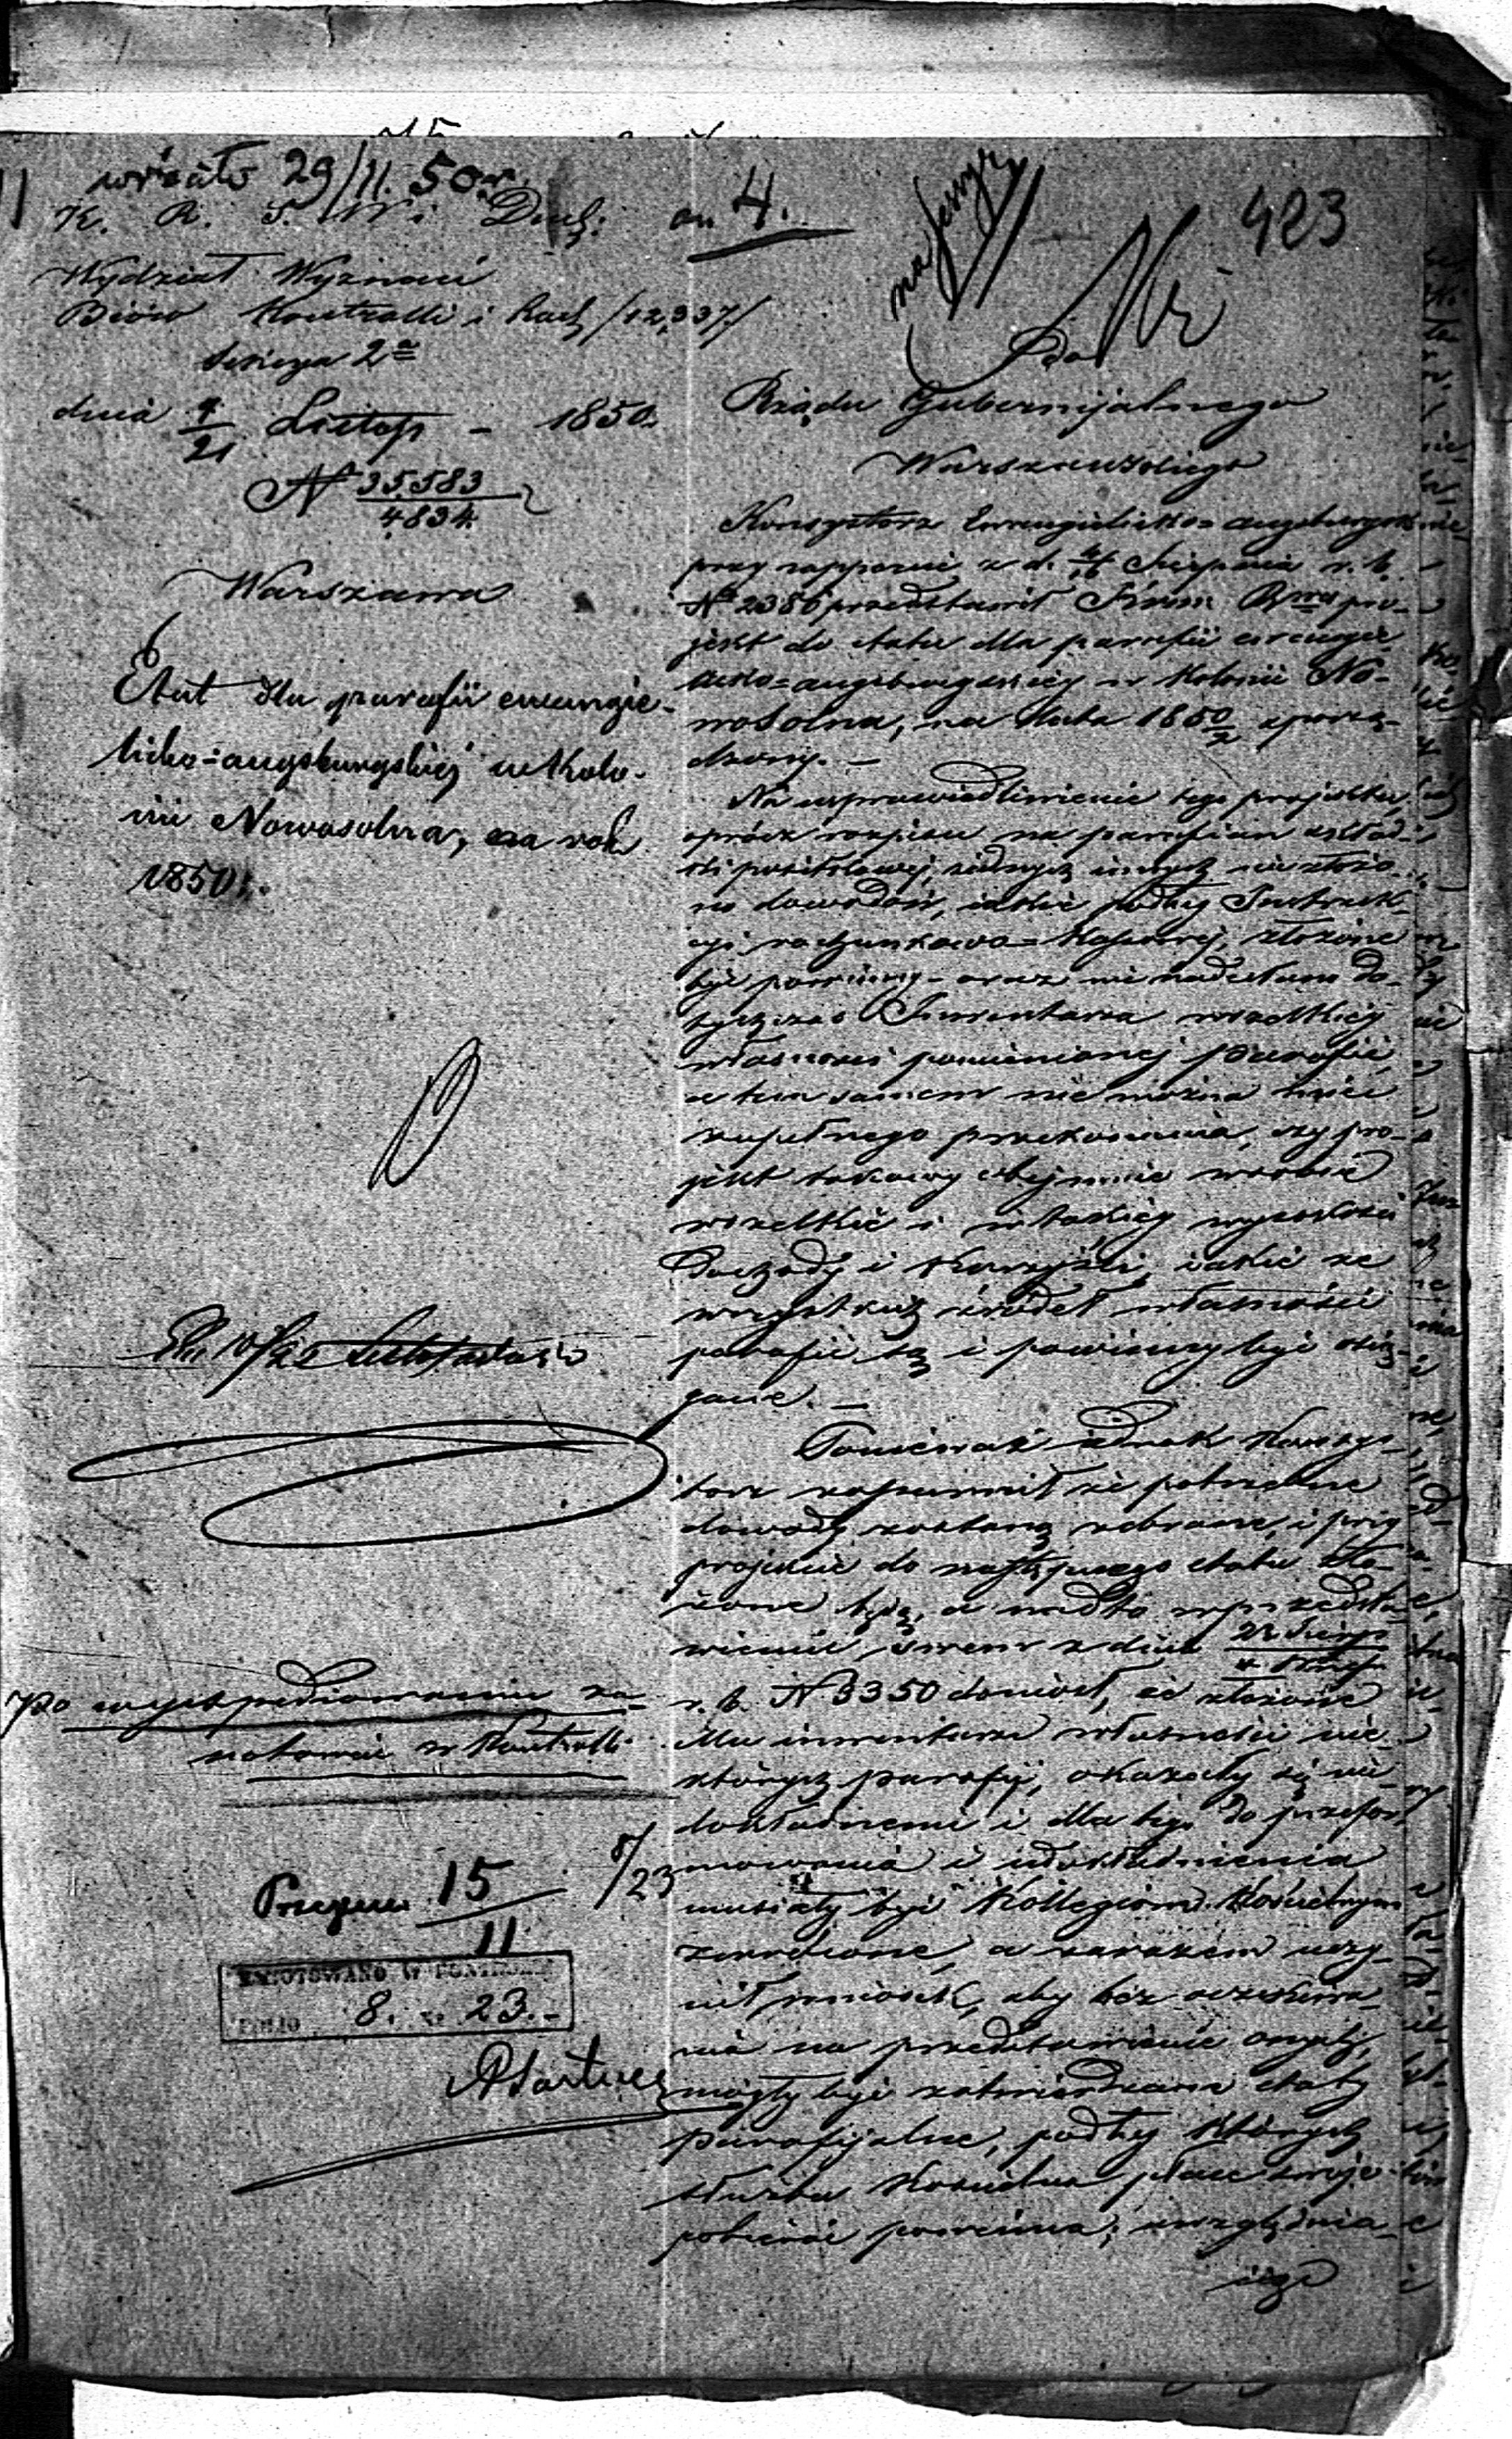 29/11. 50
K. R. S. W. i Duch. an 4.
423
Wydział Wyznań
Bióro Kontrolli i Rach /12,337/
Sekcya 2a
dnia 9/21 Listop - 1850.
N 35583/4834
Warszawa
Etat dla parafii ewangie-
licko=augsburgskiéj w Kolo-
nii Nowosolna, na rok
1850.
10/22 Listopada
Po wyexpedjowaniu za-
notować w Kontrolli
15/11
8/23
ZANOTOWANO W KONTROLLI
FOLIO 8. N. 23.-
do
Rządu Gubernijalnego
Warszawskiego
Konsystorz Ewangielicko=augsburgski
przy rapporcie z d. 4/16 Sierpnia r. b.
N 2386 przedstawił Kommi Rwej pro-
jekt do etatu dla parafii ewangie-
licko=augsburgskiéj w Kolonii No-
wosolna, na lata 1850/2 sporzą-
dzony. —
Na usprawiedliwienie tego projektu,
oprócz rozpisu na parafian skład-
ki positkowej, żadnych innych nie złożo-
no dowodów, jakie podług Instruk-
cyi rachunkowo=Kassowej, złożone
być powinny - oraz nie nadesłano do-
tychczas Inwentarza wszelkiéj
własności pomienionej Parafii,
a tem samem nie można mieć
zupełnego przekonania, czy pro-
jekt takowy obejmuje
wszelkie i w takiéj wysokości
Dochody i Korzyści, jakie ze
wszystkich źródeł własności
parafii są i powinny być osią-
gane. —
Ponieważ jednak Konsys-
torz zapewnił że potrzebne
dowody zostaną zebrane, i przy
projekcie do następnego etatu zło-
żone będą, a nadto w przedsta-
wieniu swem z dnia 22 Sierp
r. b. N 3350 doniósł, że złożone
Mu inwentarze własności nie-
których parafij, okazały się nie-
dokładnemi i dla tego do przefor-
mowania i udokładnienia
musiały być Kollegiom Kościelnym
zwrócone, a zarazem uczy-
nił wniosek, aby bez oczekiwa-
nia na przedstawienie onych,
mogły być zatwierdzane etaty
Parafijalne, podług których
służba Kościelna płace swoje
pobierać powinna; uwzględnia-
jąc